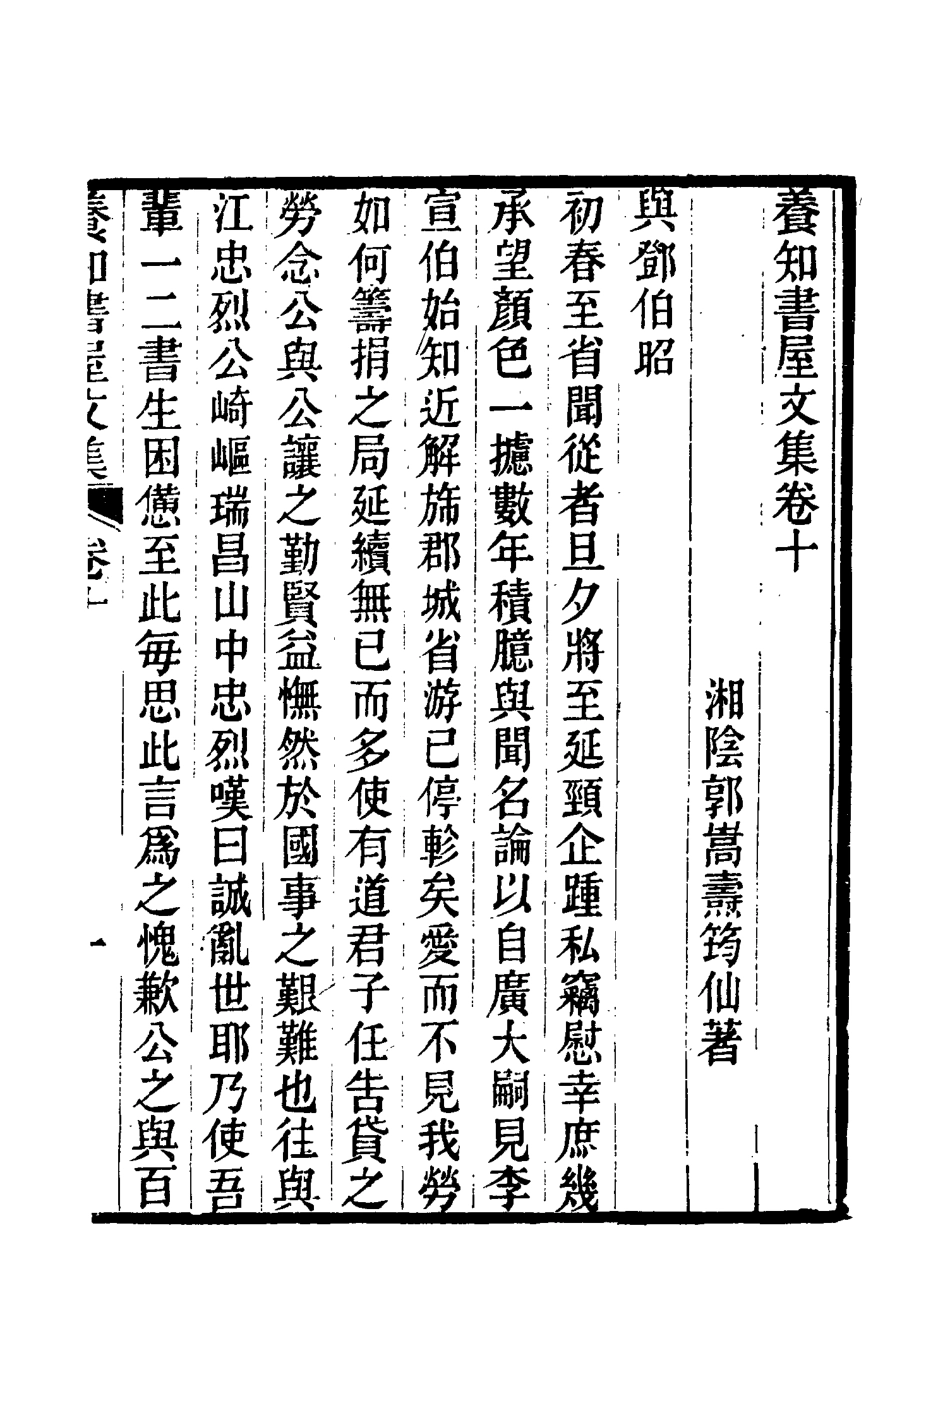 養知書屋文集卷十
湘陰郭嵩燾筠仙著
與鄧伯昭
初春至省聞從者旦夕將至延頸企踵私竊慰幸庶幾
承望顏色一攄數年積臆與聞名論以自廣大嗣見李
宣伯始知近解斾郡城省游已停軫矣愛而不見我勞
如何籌捐之局延續無已而多使有道君子任告貸之
勞念公與公讓之勤賢益憮然於國事之艱難也往與
江忠烈公崎嶇瑞昌山中忠烈嘆曰誠亂世耶乃使吾
輩一二書生困憊至此每思此言爲之愧歉公之與百
養知書屋文集 卷十 一